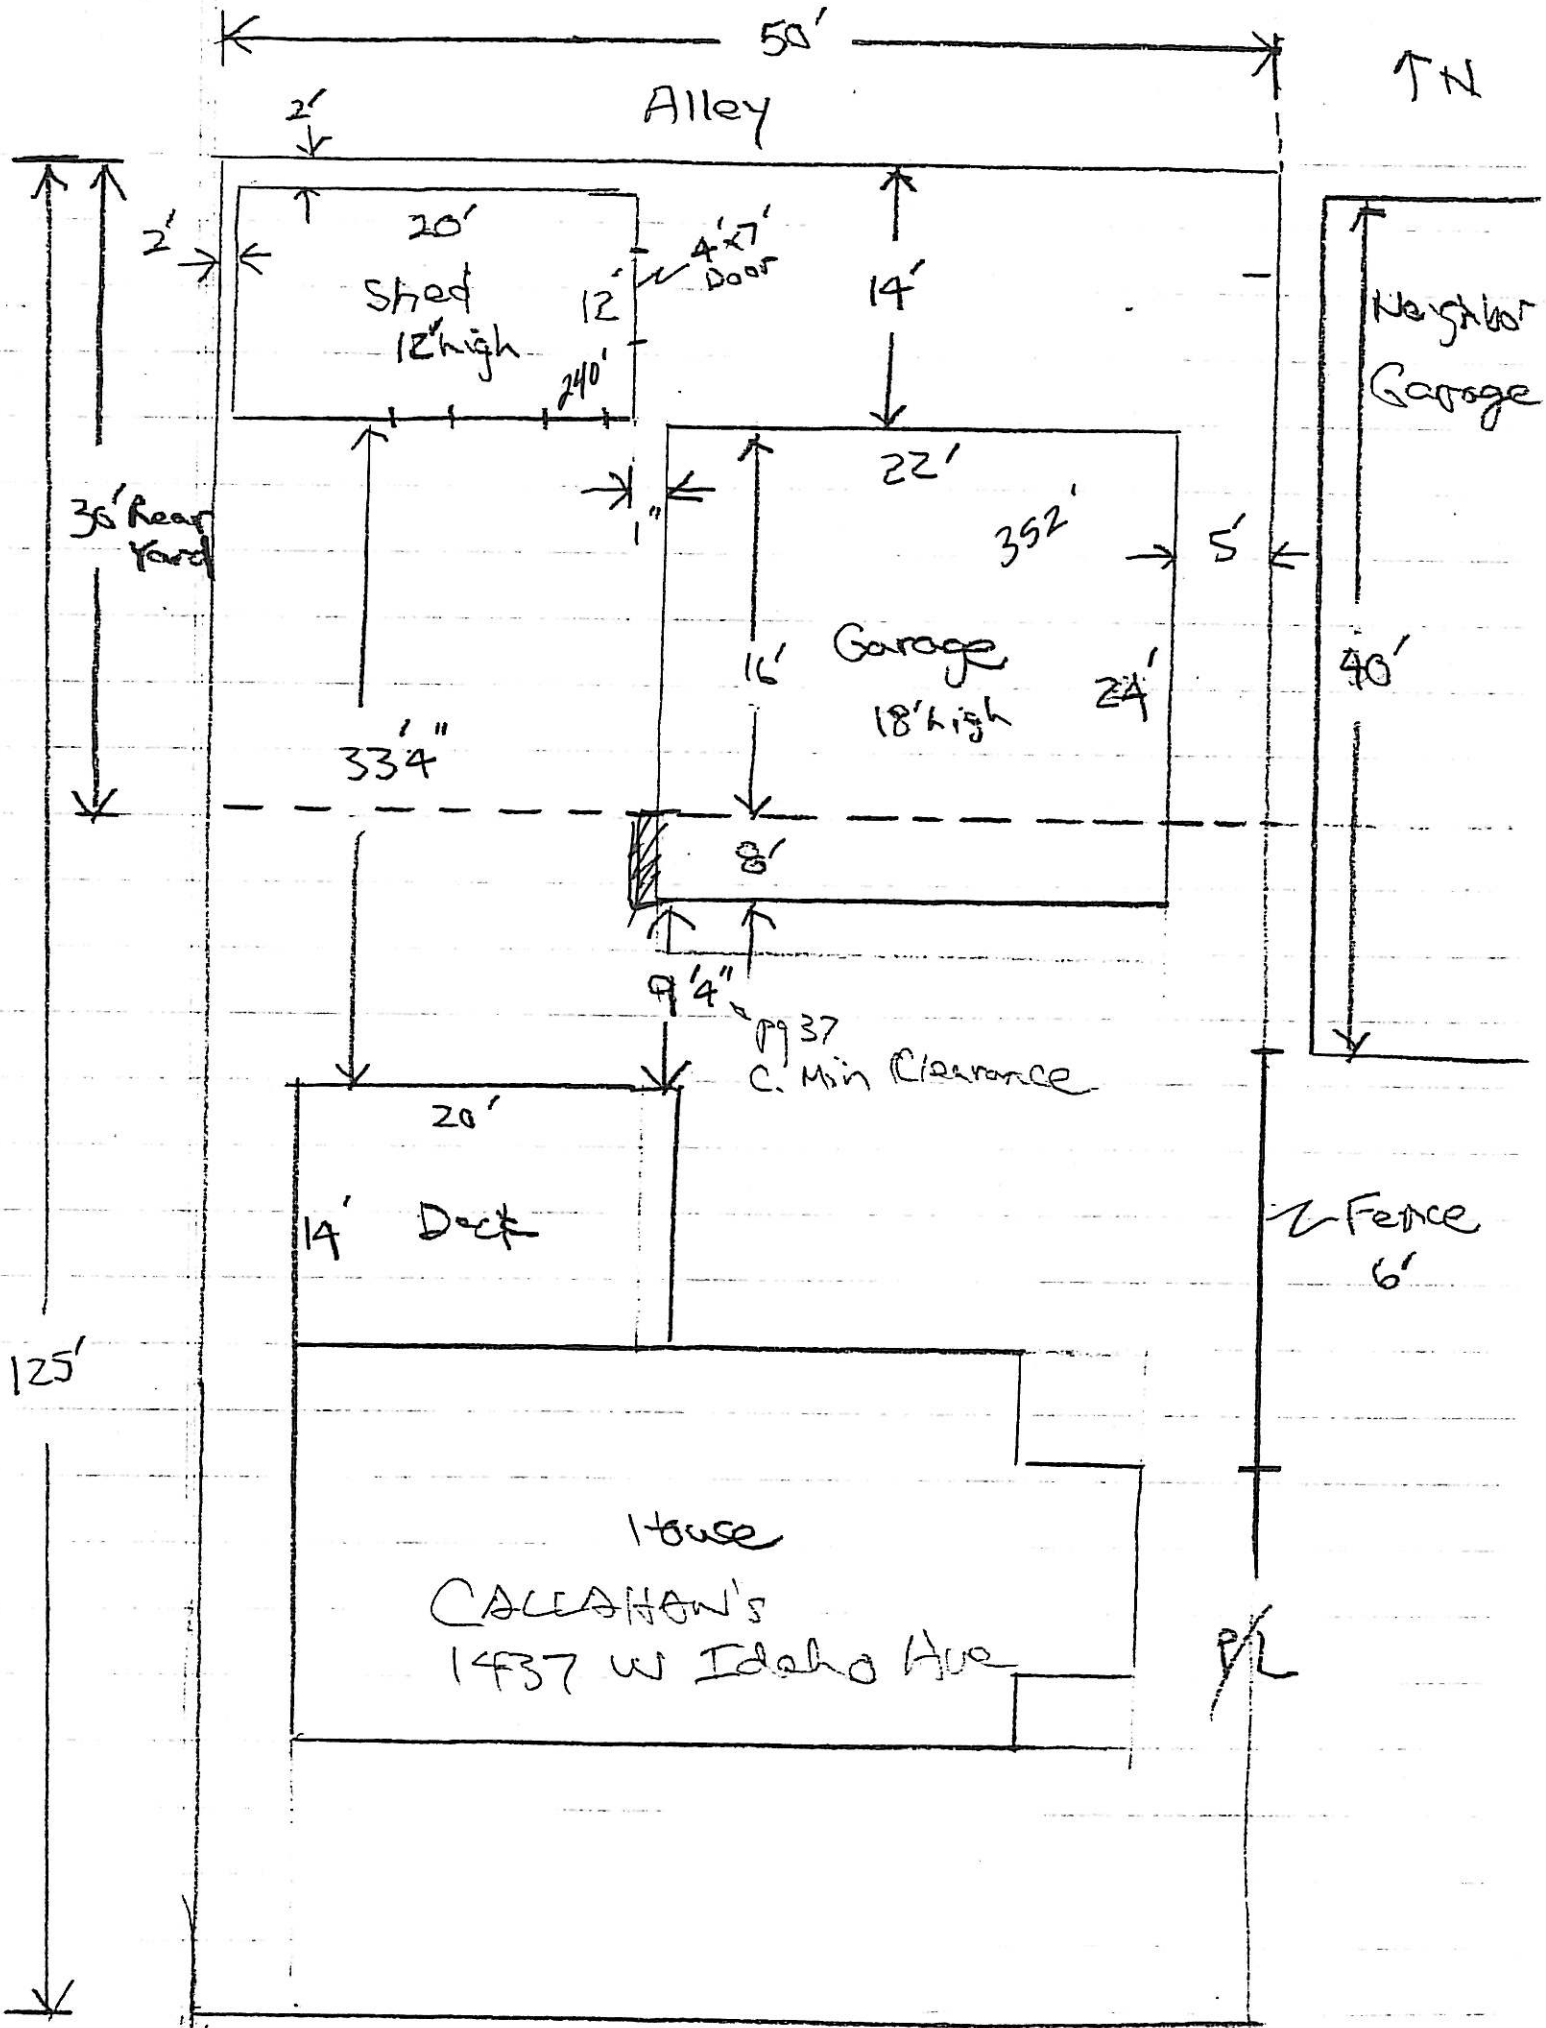 50'
↑N
Alley
2'
2'
20'
Shed
12' high
12'
240'
4'x7'
Door
14'
Neighbor
Garage
30' Rear
Yard
1"
22'
352'
5'
16'
Garage
18' high
24'
40'
33'4"
8'
9'4"
pg 37
C. Min Clearance
20'
14'
Deck
Fence
6'
125'
House
CALLAHAN'S
1437 W Idaho Ave
P/L